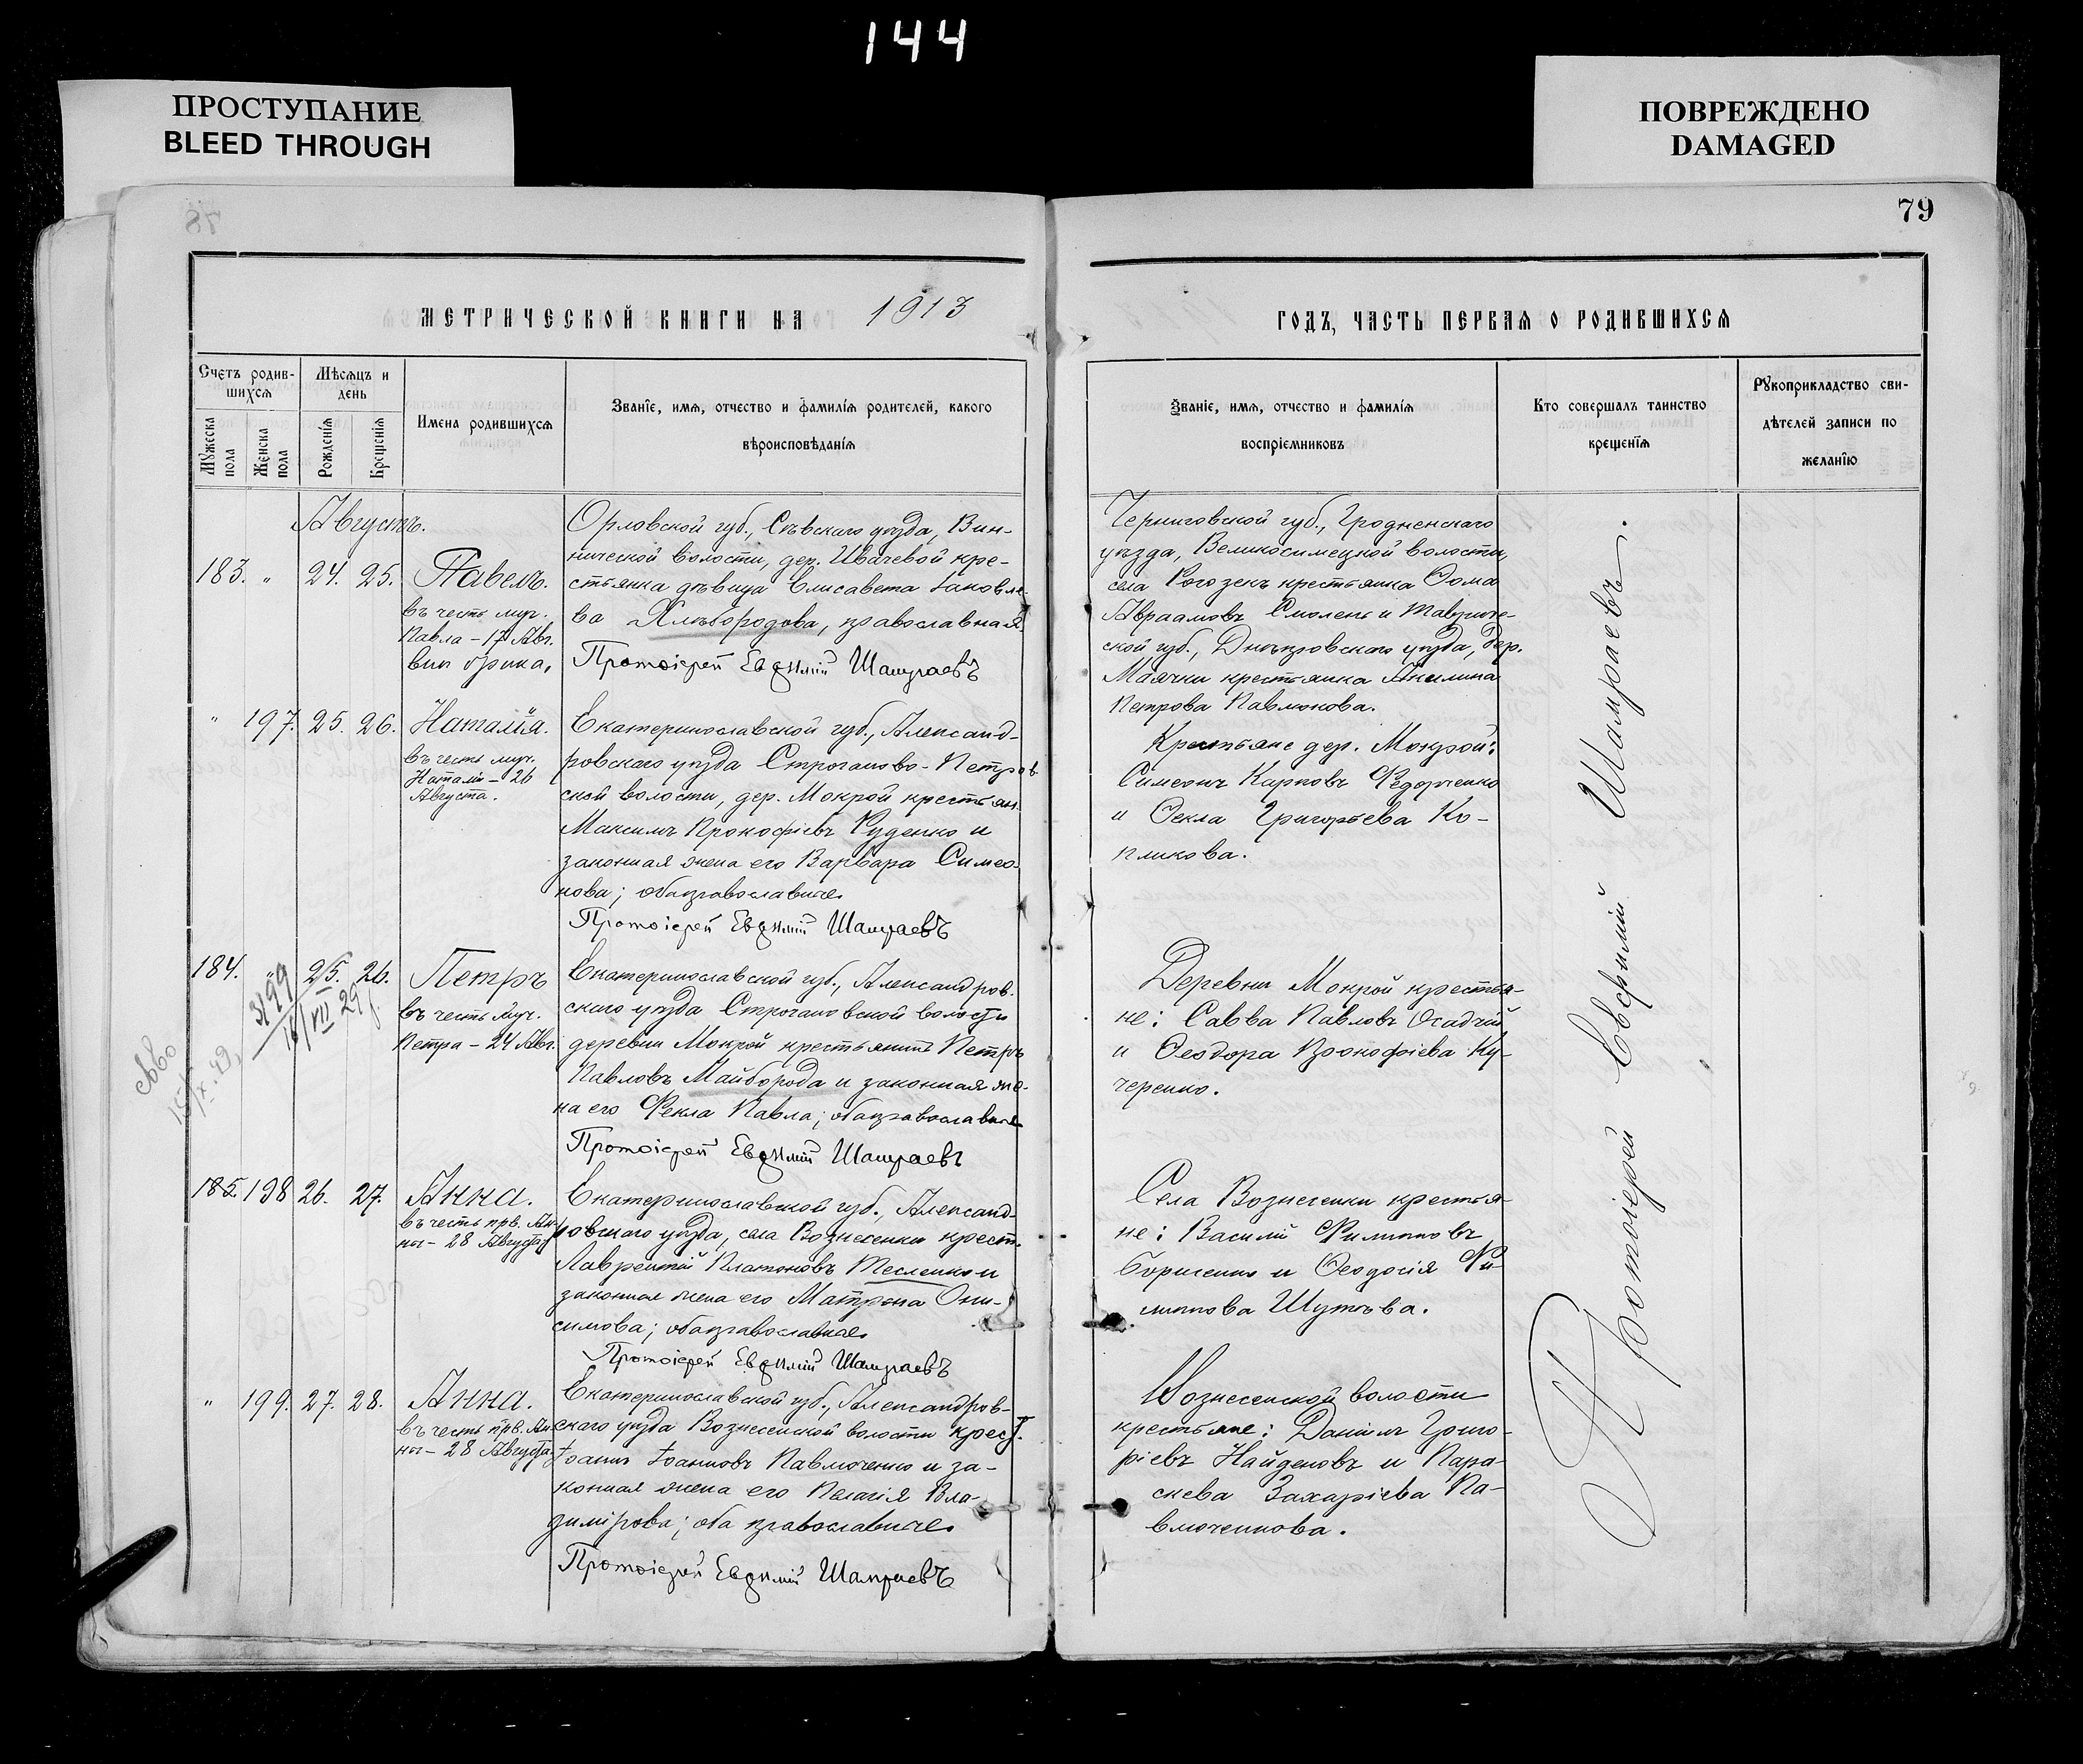 144
ПРОСТУПАНИЕ
BLEED THROUGH
ПОВРЕЖДЕНО
DAMAGED
78
79
МЕТРИЧЕСКОЙ КНИГИ НА 1913
ГОДЪ, ЧАСТЬ ПЕРВАЯ О РОДИВШИХСЯ
Счетъ родив-
шихся
Мужеска пола
Женска пола
Мѣсяцъ и
день
Рожденія
Крещенія
Имена родившихся
Званіе, имя, отчество и фамилія родителей, какого
вѣроисповѣданія
Званіе, имя, отчество и фамилія
воспріемниковъ
Кто совершалъ таинство
крещенія
Рукоприкладство сви-
дѣтелей записи по
желанію
Августъ.
183. " 24. 25. Павелъ.
въ честь муч.
Павла - 17 Авг.
Орловской губ., Сѣвскаго уѣзда, Вин-
нической волости, дер. Ивачевой кре-
стьянка дѣвица Елисавета Іаковле-
ва Хлѣбородова, православная.
Протоіерей Евфимій Шамраевъ
Черниговской губ., Гродненскаго
уѣзда, Великосимецкой волости,
села Рогозекъ крестьянка Ѳома
Авраамовъ Смолень и Тавриче-
ской губ., Днѣпровскаго уѣзда, дер.
Маячки крестьянка Акилина
Петрова Павлюкова.
" 197. 25. 26. Наталія.
въ честь муч.
Наталіи - 26
Августа.
Екатеринославской губ., Александ-
ровскаго уѣзда Строганово-Петров-
ской волости, дер. Мокрой крестьян.
Максимъ Прокофіевъ Руденко и
законная жена его Варвара Симео-
нова; оба православные
Протоіерей Евфимій Шамраевъ
Крестьяне дер. Мокрой:
Симеонъ Карповъ Федорченко
и Ѳекла Григорьева Ко-
пликова.
184. " 25. 26. Петръ
въ честь муч.
Петра - 24 Авг.
3199
16/VII 29
Екатеринославской губ., Александров-
скаго уѣзда Строгановской волости
деревни Мокрой крестьянинъ Петръ
Павловъ Майборода и законная же-
на его Фекла Павла; оба православные
Протоіерей Евфимій Шамраевъ
Деревни Мокрой крестья-
не: Савва Павловъ Осадчій
и Ѳеодора Прокофіева Ку-
ченренко.
185. 198 26. 27. Анна.
въ честь прв. Ан-
ны - 28 Августа
Екатеринославской губ., Александ-
ровскаго уѣзда, села Вознесенки крест.
Лаврентій Платоновъ Тесленко и
законная жена его Матрона Они-
симова; оба православные
Протоіерей Евфимій Шамраевъ
Села Вознесенки крестья-
не: Василій Филипповъ
Борисенко и Ѳеодосія Фи-
липпова Шутьва.
" 199. 27. 28. Анна.
въ честь прв. Ан-
ны - 28 Августа.
Екатеринославской губ., Александров-
скаго уѣзда Вознесенской волости крест.
Іоаннъ Іоанновъ Павлюченко и за-
конная жена его Пелагія Вла-
димірова; оба православные
Протоіерей Евфимій Шамраевъ
Вознесенской волости
крестьяне: Даніилъ Григо-
ріевъ Найденовъ и Пара-
скева Захаріева Па-
влюченкова.
Протоіерей Евфимій Шамраевъ.